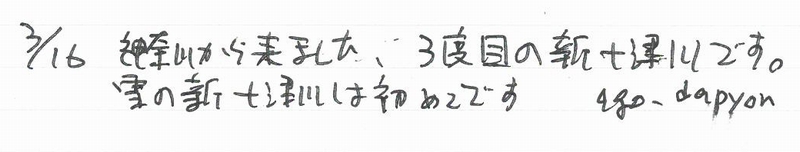 3/16 神奈川から来ました、3度目の新十津川です。
雪の新十津川は初めてです dapyon